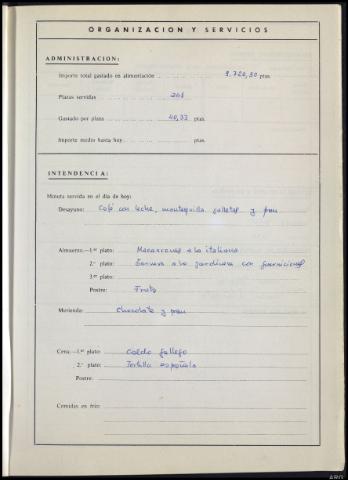 ORGANIZACION Y SERVICIOS
ADMINISTRACION:
Importe total gastado en alimentación 9.720,50 ptas.
Plazas servidas
Gastado por plaza 40,33 ptas.
Importe medio hasta hoy ptas.
INTENDENCIA:
Minuta servida en el día de hoy:
Desayuno: Café con leche, mantequilla, galletas y pan
Almuerzo.—1.er plato: Macarrones a la italiana
2.º plato: Ternera a la jardinera con guarniciones
3.er plato:
Postre: Fruta
Merienda: Chocolate y pan
Cena.—1.er plato: Caldo gallego
2.º plato: Tortilla española
Postre:
Comidas en frío:
ARG